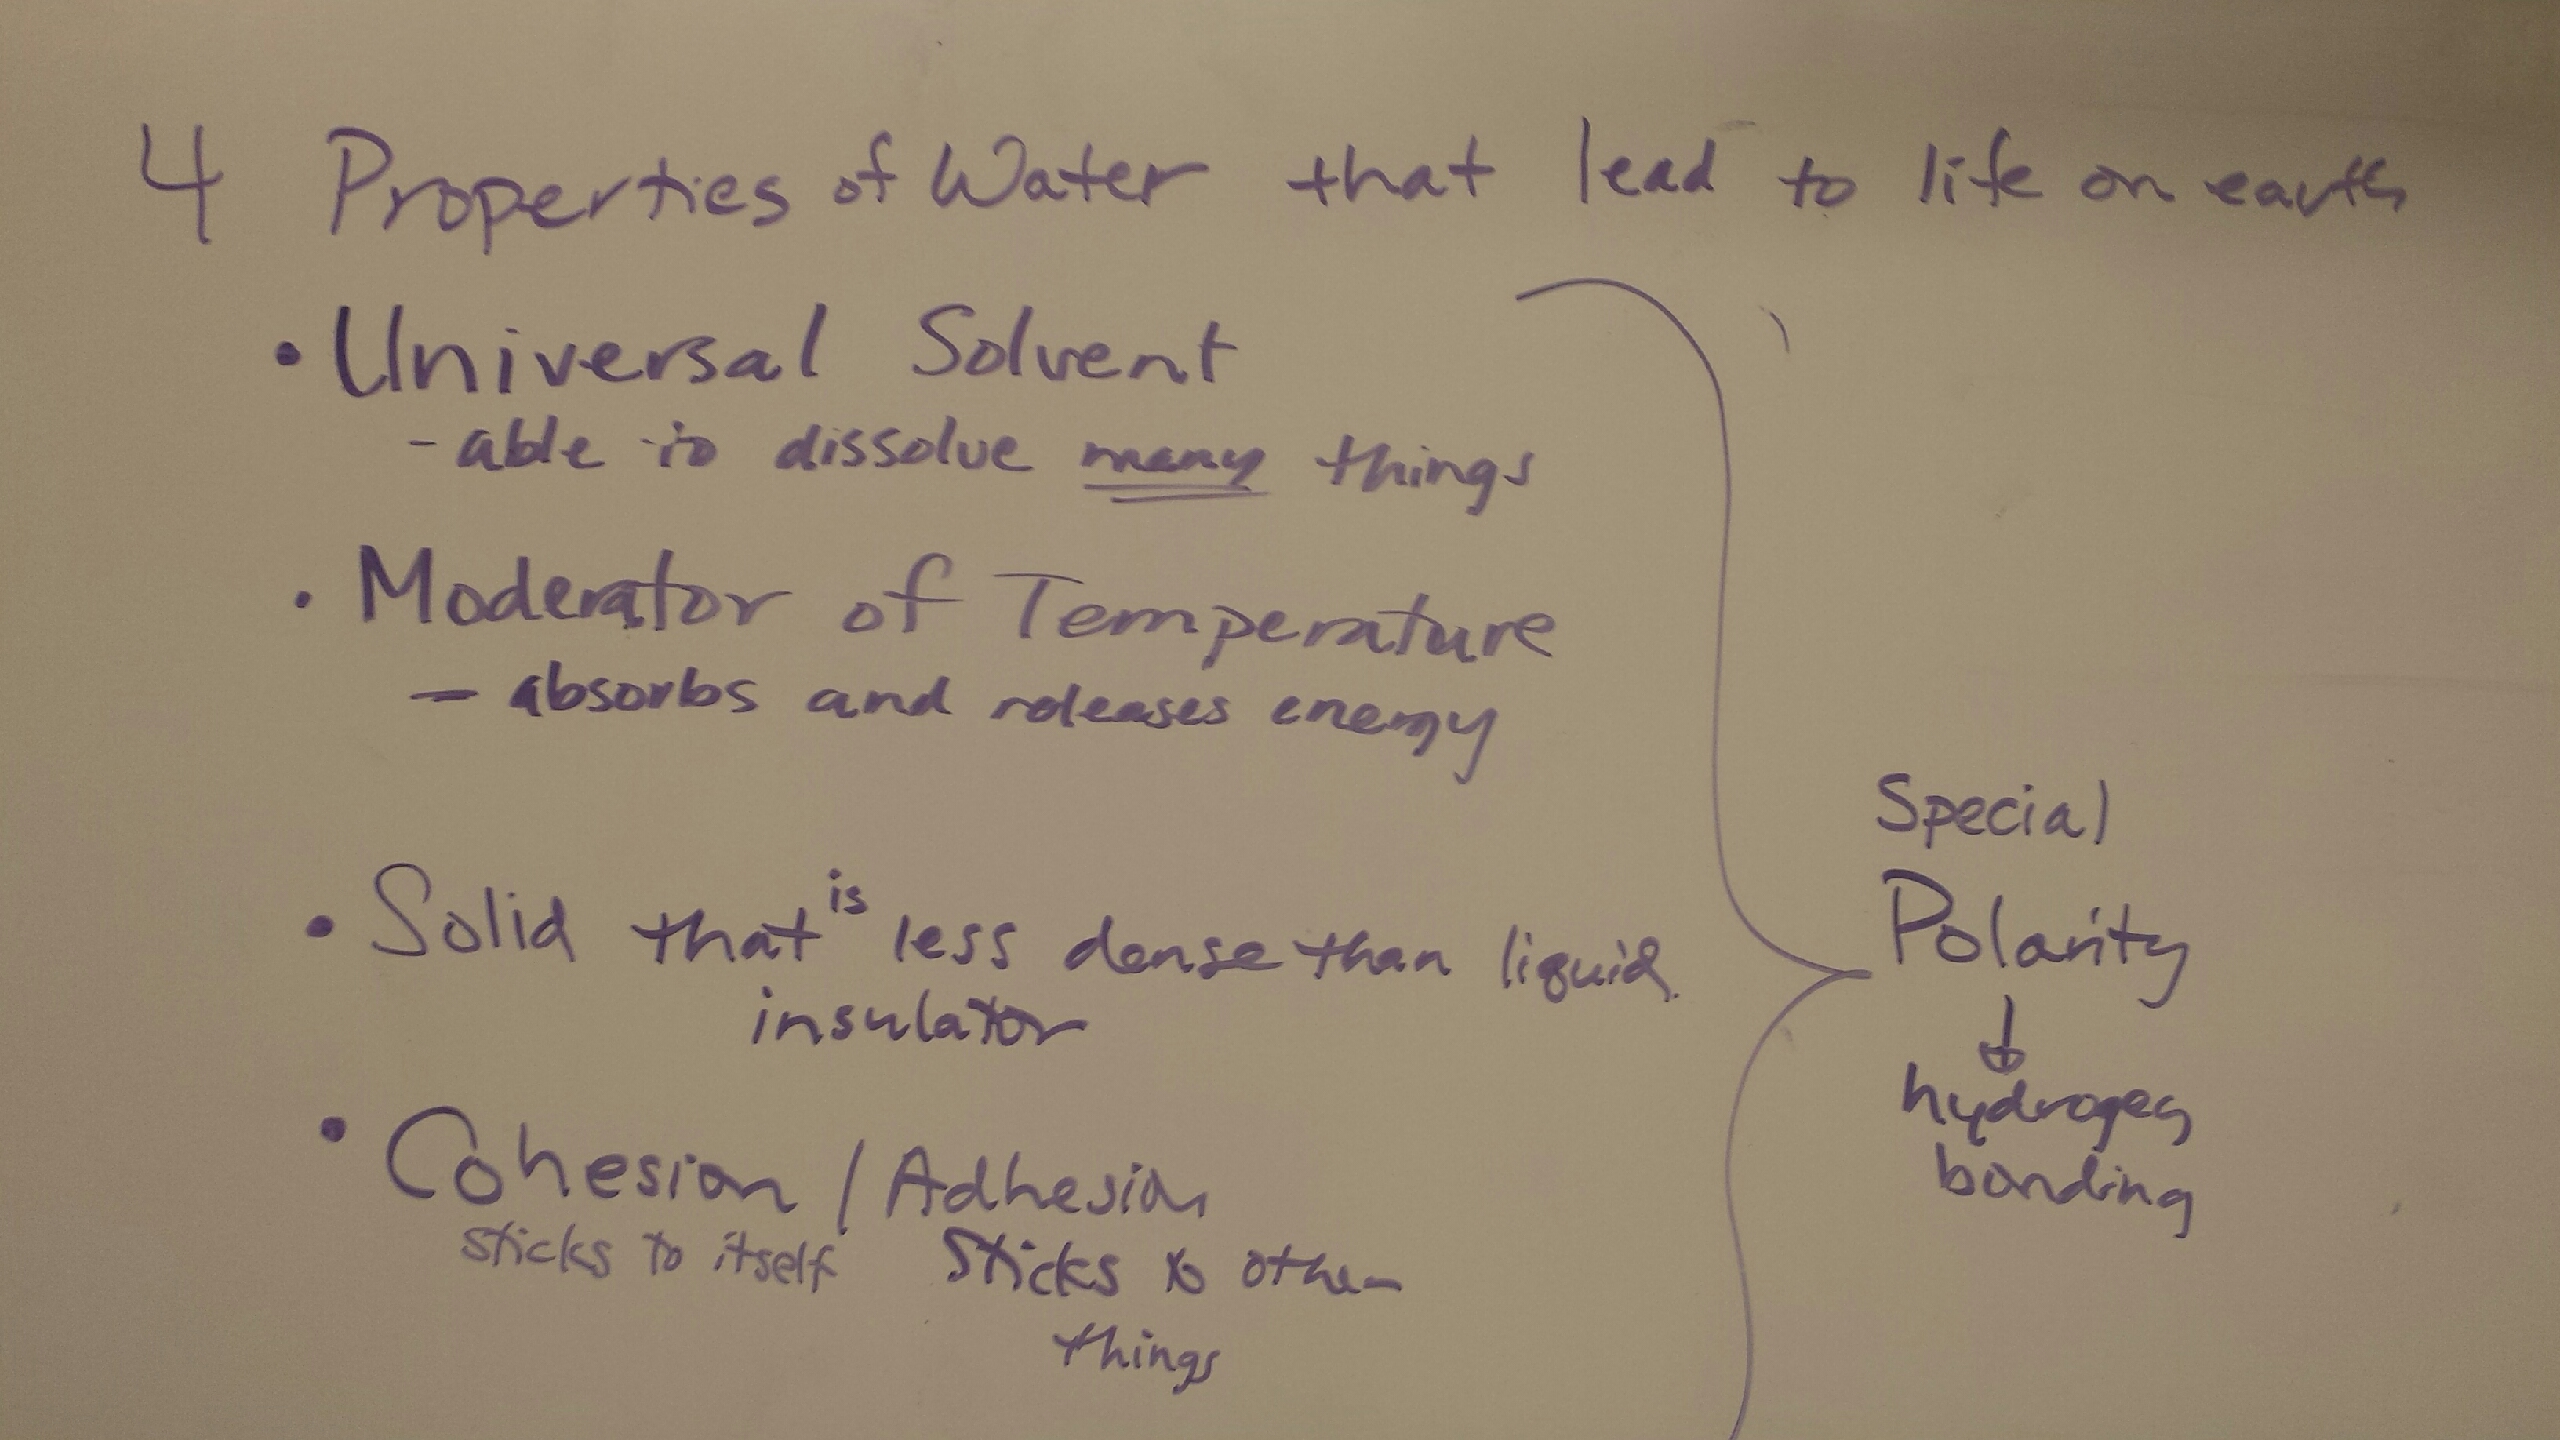 4 Properties of Water that lead to life on earth
• Universal Solvent
- able to dissolve many things
• Moderator of Temperature
- absorbs and releases energy
• Solid that is less dense than liquid
insulator
• Cohesion / Adhesion
sticks to itself sticks to other
things
Special
Polarity
↓
hydrogen
bonding